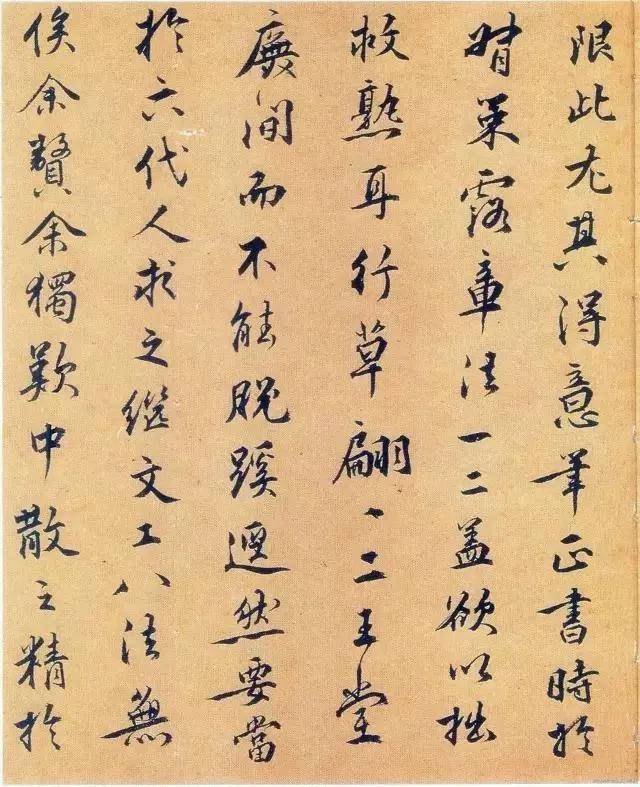 限此尤其得意筆正書時於
督策露章法一二蓋欲以拙
救熟耳行草翩〻二王堂
廡間而不能脫蹊逕然要當
於六代人求之繼文工八法無
俟余贊余獨歎中散之精於